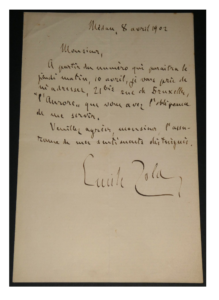 Médan, 8 avril 1902
Monsieur,
A partir du numéro qui paraîtra le
jeudi matin, 10 avril, je vous prie de
m'adresser, 21 bis rue de Bruxelles,
"l'Aurore" que vous avez l'obligeance
de me servir.
Veuillez agréer, monsieur, l'assu-
rance de mes sentiments distingués.
Emile Zola